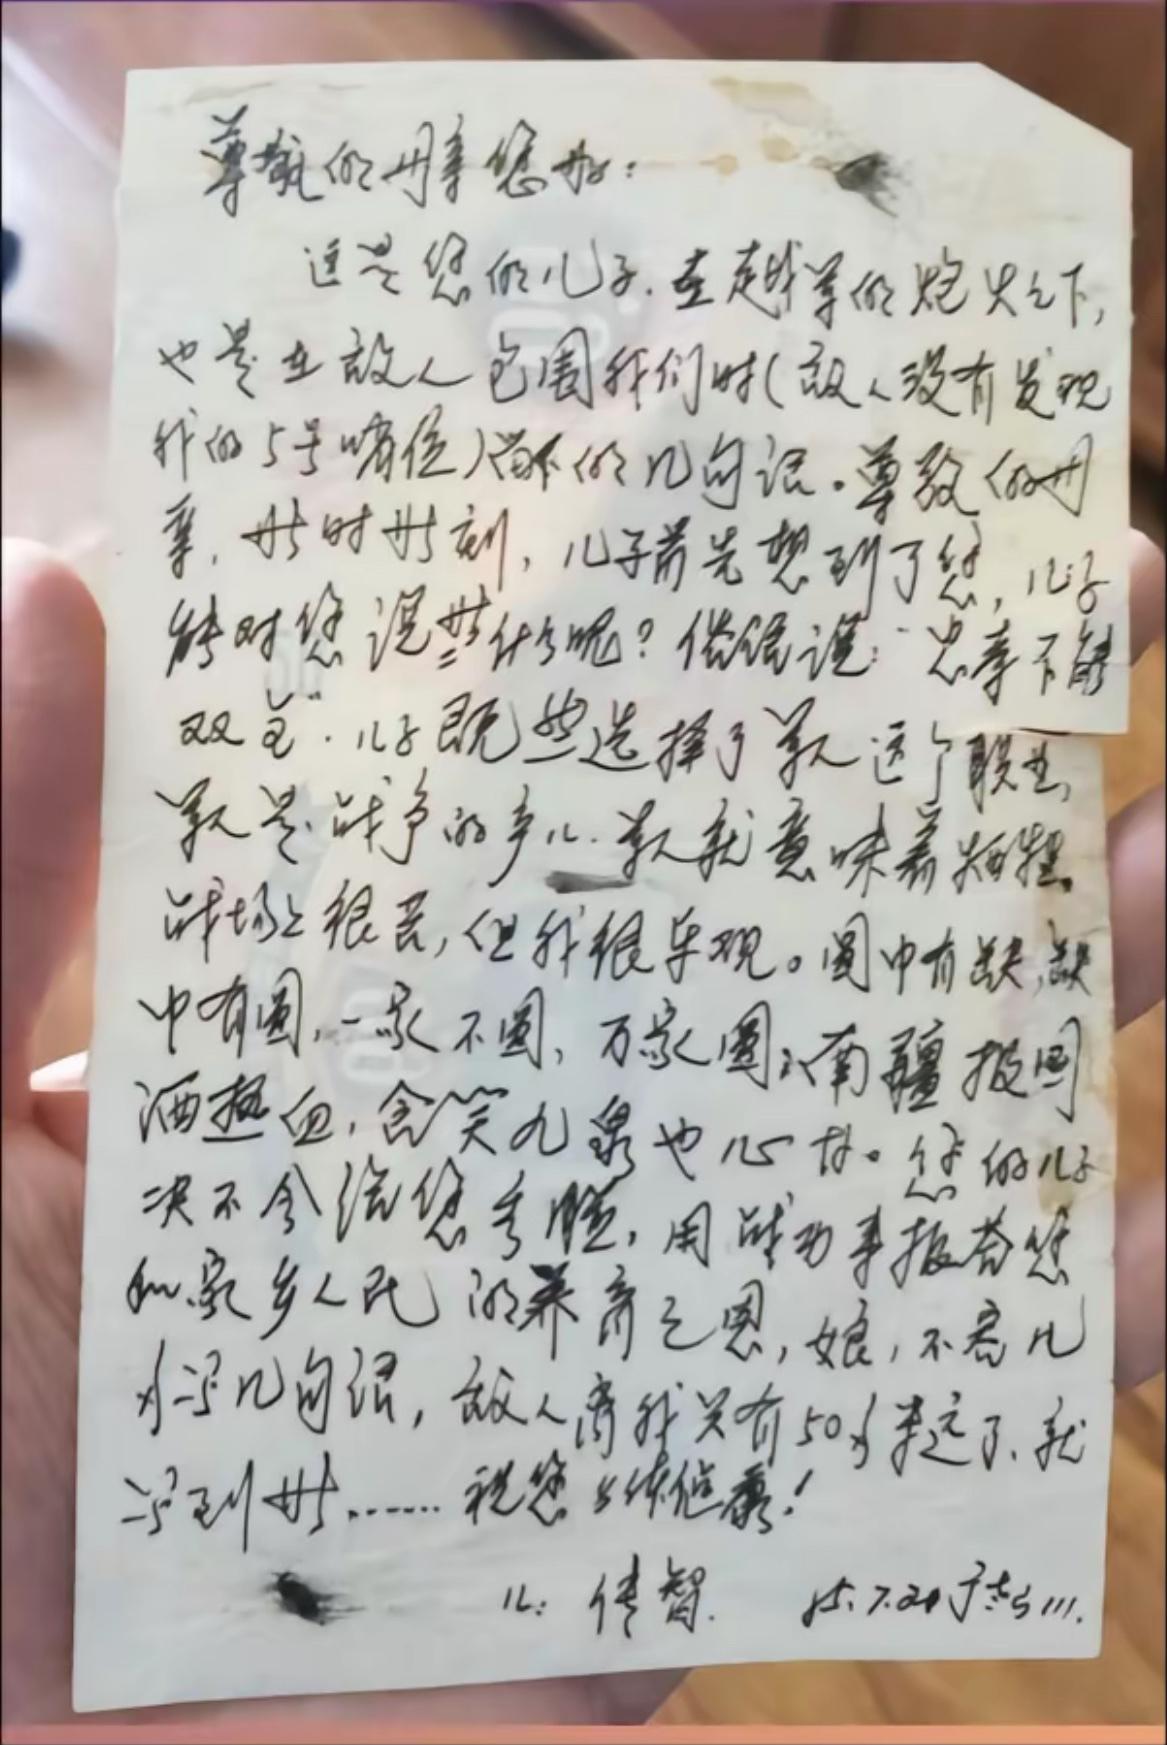 尊敬的母亲您好：
这是您的儿子.在越军的炮火之下，
也是在敌人包围我们时(敌人没有发现
我的5号哨位)留下的几句话。尊敬的母
亲，此时此刻，儿子首先想到了您，儿子
能对您说些什么呢？俗语说：忠孝不能
双全.儿子既然选择了军人这个职业，
军人是战争的产儿.军人就意味着牺牲。
战场上很苦，但我很乐观。圆中有缺，缺
中有圆，一家不圆，万家圆，南疆报国
洒热血，含笑九泉也心甘。您的儿子
决不会给您丢脸，用战功来报答您
和家乡人民的养育之恩，娘，不容儿
多写几句话，敌人离我只有50多米远了、就
写到此……祝您身体健康！
儿：传智. 85.7.20于老